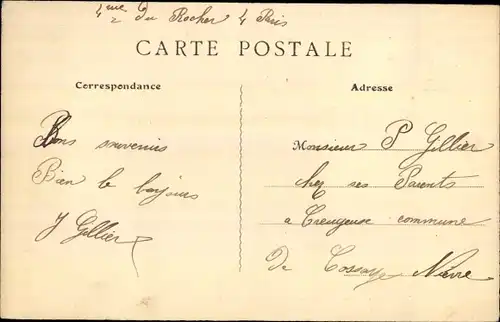 4 rue du Rocher 4 Paris
CARTE POSTALE
Correspondance
Adresse
Bons souvenirs
Bien le bonjour
J Gillier
Monsieur P Gillier
chez ses Parents
a commune
de Cossaye Nièvre